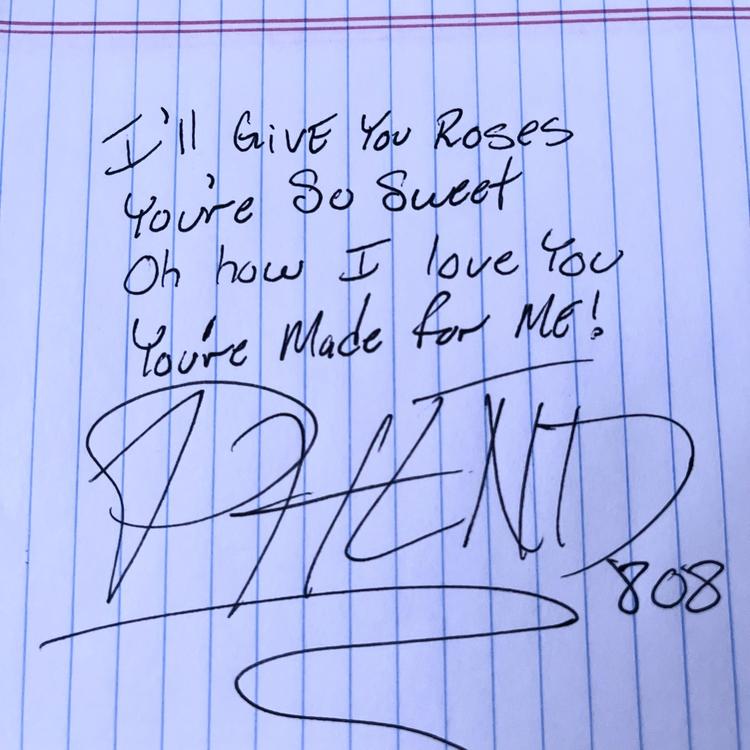 I'll GiVE You Roses
You're So Sweet
Oh how I love You
You're Made for ME!
808